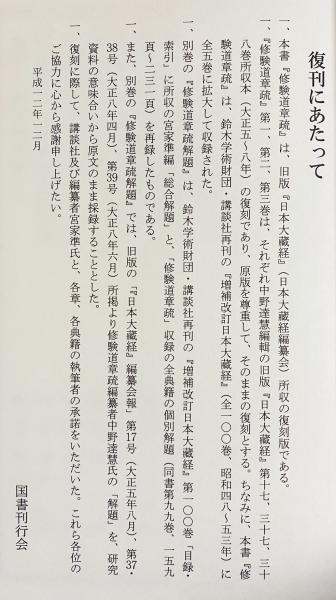 復刊にあたって
一、本書『修験道章疏』は、旧版『日本大藏経』（日本大藏経編纂会）所収の復刻版である。
一、『修験道章疏』第一、第二、第三巻は、それぞれ中野達慧編輯の旧版『日本大藏経』第十七、三十七、三十
八巻所収本（大正五〜八年）の復刻であり、原版を尊重して、そのままの復刻とする。ちなみに、本書『修
験道章疏』は、鈴木学術財団・講談社再刊の『増補改訂日本大藏経』（全一〇〇巻、昭和四八〜五三年）に
全五巻に拡大して収録された。
一、別巻の『修験道章疏解題』は、鈴木学術財団・講談社再刊の『増補改訂日本大藏経』第一〇〇巻「目録・
索引」に所収の宮家準編「総合解題」と、「修験道章疏」収録の全典籍の個別解題（同書第九九巻、一五九
頁〜二三一頁）を再録したものである。
一、また、別巻の『修験道章疏解題』では、旧版の「『日本大藏経』編纂会報」第17号（大正五年八月）、第37・
38号（大正八年四月）、第39号（大正八年六月）所掲より修験道章疏編纂者中野達慧氏の「解題」を、研究
資料の意味合いから原文のまま採録することとした。
一、復刻に際して、講談社及び編纂者宮家準氏と、各章、各典籍の執筆者の承諾をいただいた。これら各位の
ご協力に心から感謝申し上げたい。
平成一二年一二月
国書刊行会